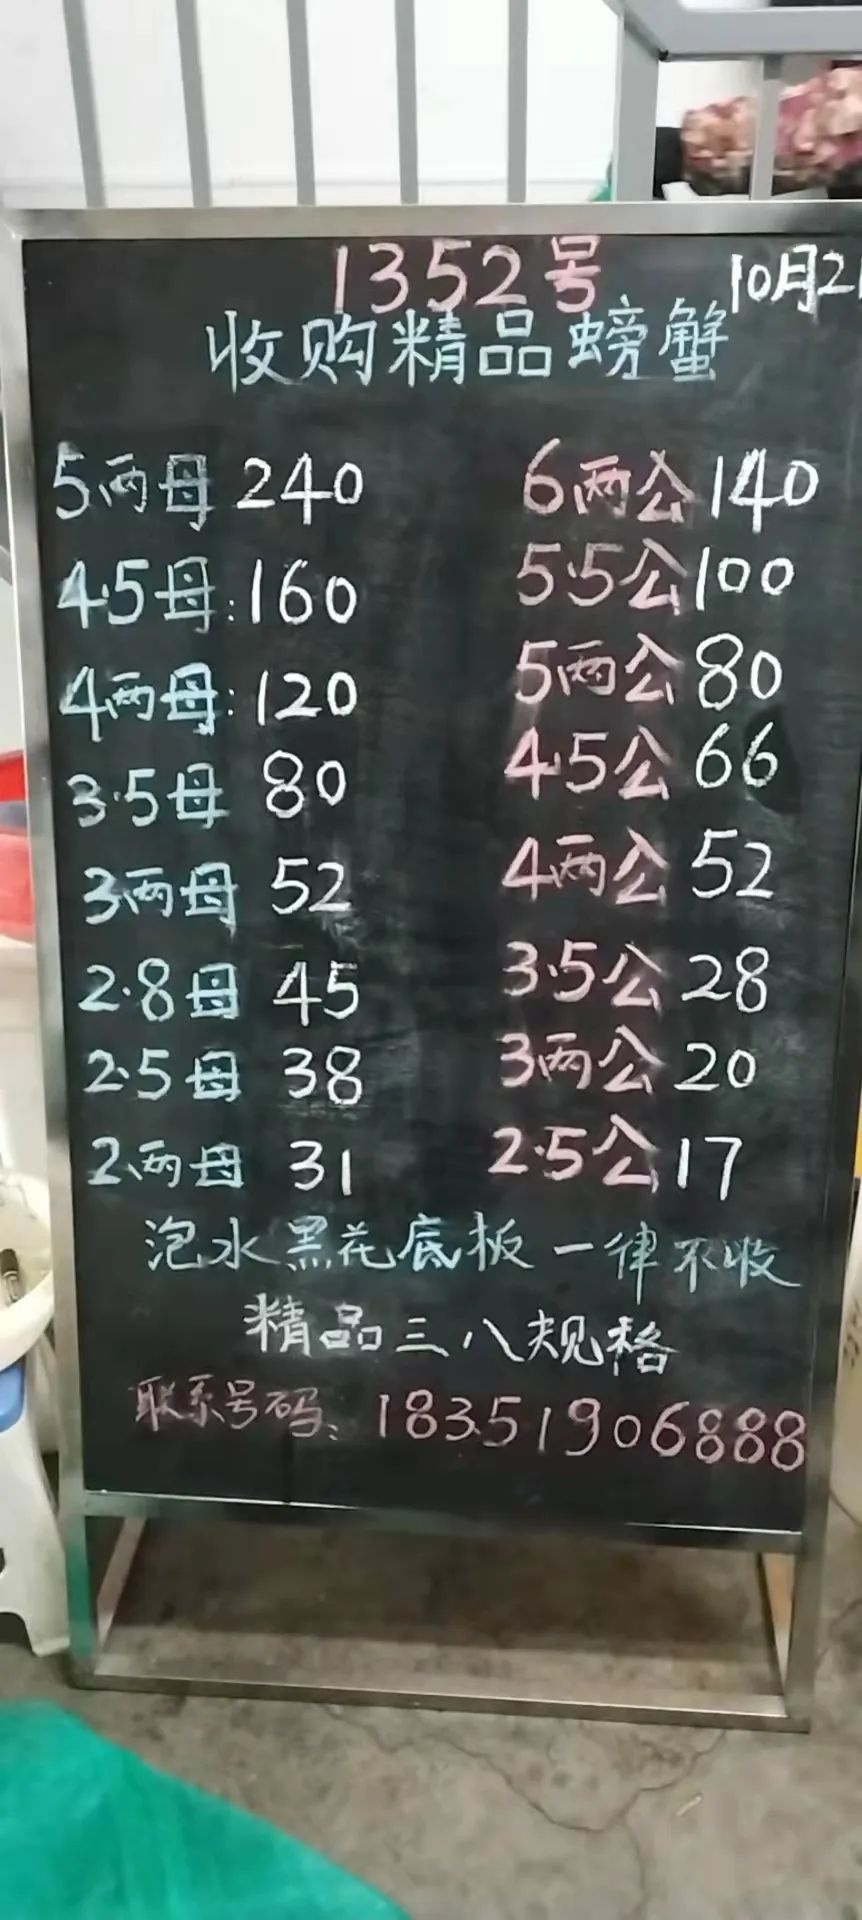 1352号 10月2
收购精品螃蟹
5两母 240 6两公 140
4.5母: 160 5.5公 100
4两母: 120 5两公 80
3.5母 80 4.5公 66
3两母 52 4两公 52
2.8母 45 3.5公 28
2.5母 38 3两公 20
2两母 31 2.5公 17
泡水黑花底板一律不收
精品三八规格
联系号码: 18351906888